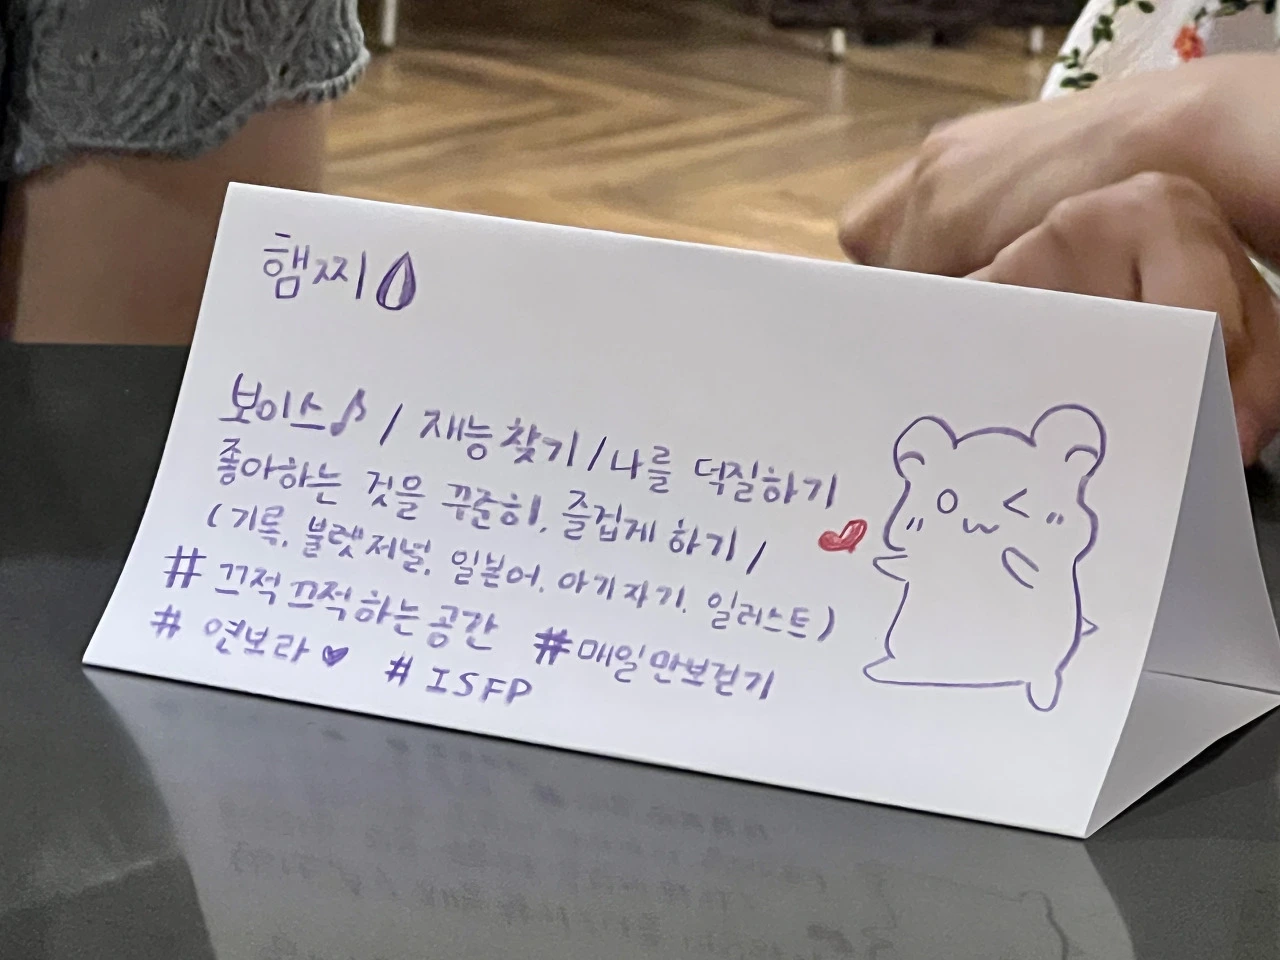 햄찌
보이스♪ / 재능 찾기 / 나를 덕질하기
좋아하는 것을 꾸준히, 즐겁게 하기 /
(기록, 불렛저널, 일본어, 아기자기, 일러스트)
# 끄적끄적하는 공간 #매일만보걷기
# 연보라♥ # ISFP